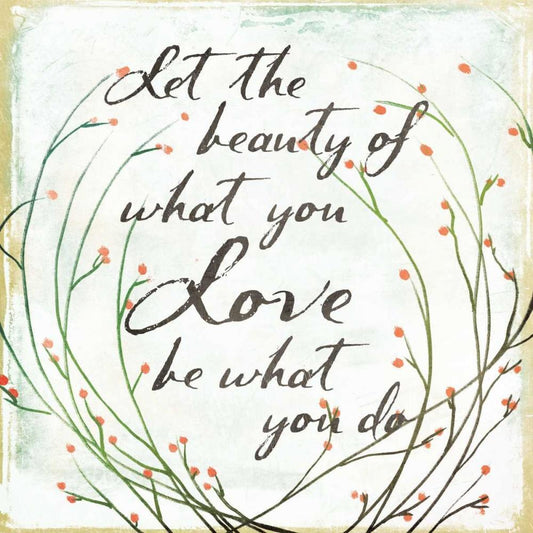 Let the
beauty of
what you
Love
be what
you do